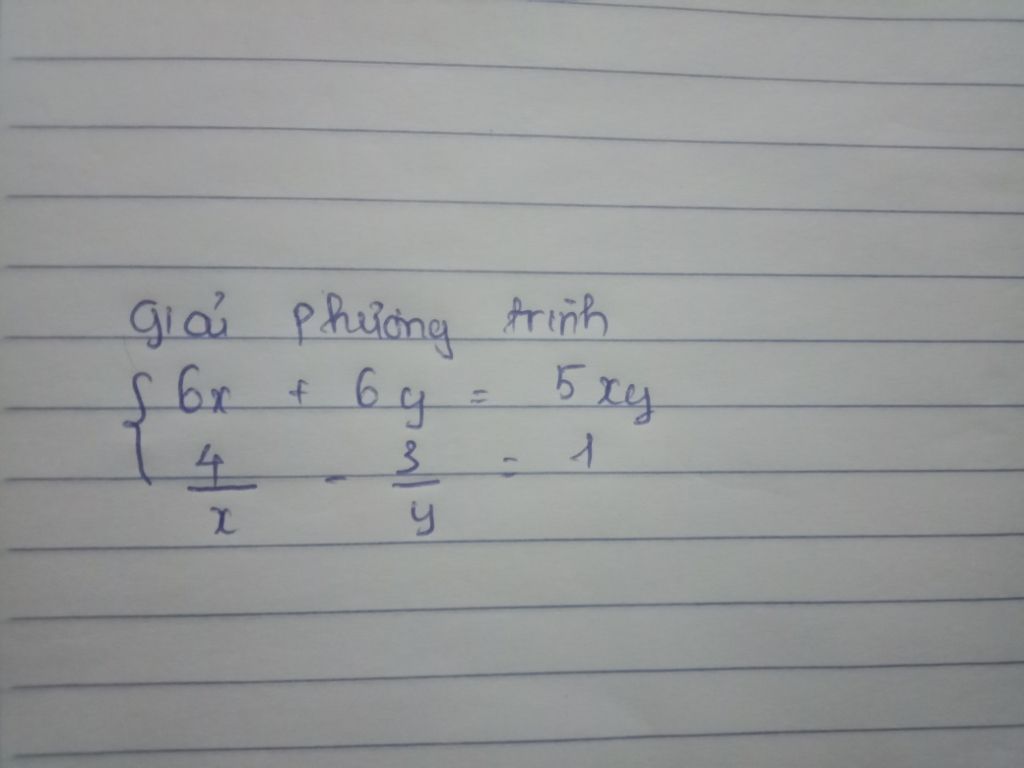 Giải phương trình
6x + 6y = 5xy
4/x - 3/y = 1